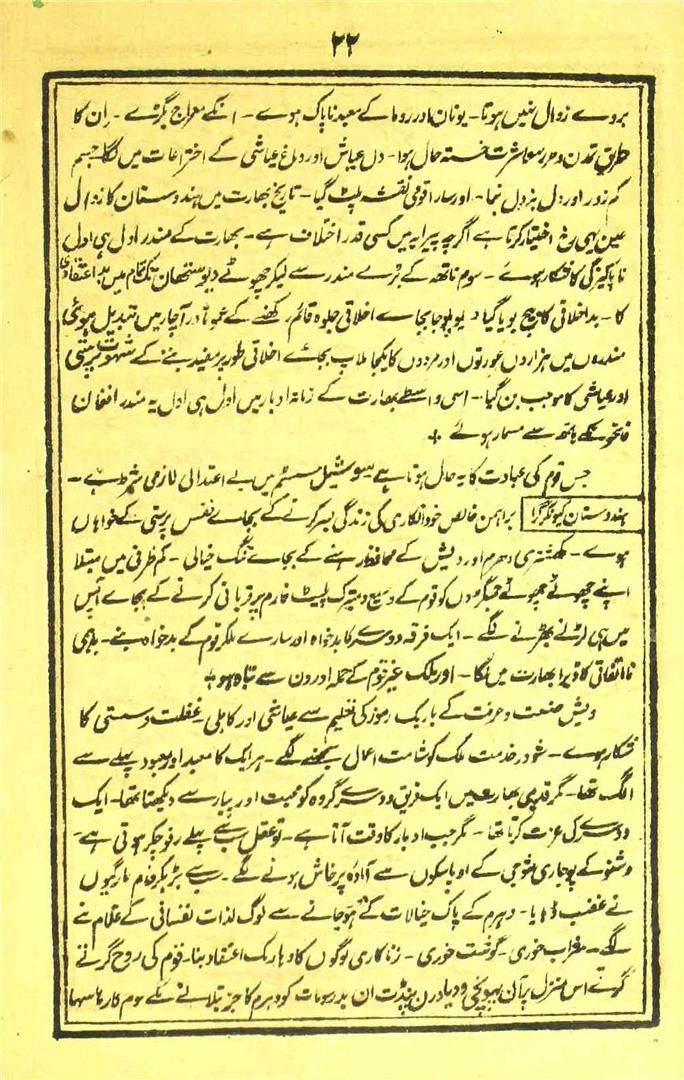 ۲۲
ہروے زوال نہیں ہوتا۔ یونان اور روما کے معبد ناپاک ہوے۔ انکے معراج بگڑے۔ اِن کا
طریق تمدن و معاشرت خستہ حال ہوا۔ دل عیاش اور دماغ عیاشی کے اختراعات میں لگا۔ جسم
کمزور اور دل بزدل بنا۔ اور سارا قومی نقشہ پلٹ گیا۔ تاریخ بھارت میں ہندوستان کا زوال
عین یہی رخ اختیار کرتا ہے اگرچہ پیرایہ میں کسی قدر اختلاف ہے۔ بھارت کے مندر اول ہی اول
ناپاکیزگی کا شکار ہوے۔ سوم ناتھ کے بڑے مندر سے لیکر چھوٹے دیوستھان تک تمام میں بداعتقادی
کا۔ بداخلاقی کا بیج بویا گیا دیوپوجا بجاے اخلاقی جلوہ قائم رکھنے کے عموماً درآچار میں تبدیل ہوئی
مندروں میں ہزاروں عورتوں اور مردوں کا یکجا ملاپ بجاے اخلاقی طور پر مفید بننے کے شہوت پرستی
اور عیاشی کا موجب بن گیا۔ اسی واسطے بھارت کے زمانہ ادبار میں اول ہی اول یہ مندر افغان
فاتحونکے ہاتھ سے مسمار ہوئے +
جس قوم کی عبادت کا یہ حال ہوتا ہے سوشیل سسٹم میں بے اعتدالی لازمی شرط ہے۔
ہندوستان کیونکر گرا براہمن خالص خود انکاری کی زندگی بسر کرنے کے بجاے نفس پرستی کے خواہاں
ہوے۔ کھشتری دھرم اور دیش کے محافظ رہنے کے بجاے تنگ خیالی۔ کم ظرفی میں مبتلا
اپنے چھوٹے چھوٹے جھگڑوں کو قوم کے وسیع و متبرک پلیٹ فارم پر قربانی کرنے کے بجاے آپس
میں ہی لڑنے بھڑنے لگے۔ ایک فرقہ دوسرے کا بدخواہ اور سارے ملکر قوم کے بدخواہ بنے۔ باہمی
نااتفاقی کا ڈیرا بھارت میں لگا۔ اور ملک غیر قوم کے حملہ اورون سے تباہ ہو +
ویش صنعت و حرفت کے باریک رموز کی تعلیم سے عیاشی اور کاہلی۔ غفلت و سستی کا
شکار ہوے۔ شودر خدمت ملک کو شامت اعمال سمجھنے لگے۔ ہر ایک کا معبد اور معبود پہلے سے
الگ تھا۔ مگر قدیمی بھارت میں ایک فریق دوسرے گروہ کو محبت اور پیار سے دیکھتا تھا۔ ایک
دوسرے کی عزت کرتا تھا۔ مگر جب ادبار کا وقت آتا ہے۔ تو عقل سب سے پہلے رفوچکر ہوتی ہے۔
وشنو کے پوجاری شوجی کے اوپاسکوں سے آمادہ پرخاش ہونے لگے۔ سب سے بڑہکر وام مارگیوں
نے غضب ڈہایا۔ دہرم کے پاک خیالات گم ہوجانے سے لوگ لذات نفسانی کے غلام بننے
لگے۔ شراب خوری۔ گوشت خوری۔ زناکاری لوگوں کا دہارمک اعتقاد بنا۔ قوم کی روح گرتے
گرتے اس منزل پر آن پہونچی ودیادرن پنڈت ان بدرسومات کو دہرم کا جز بتلانے لگے سوم کا رہا سہا